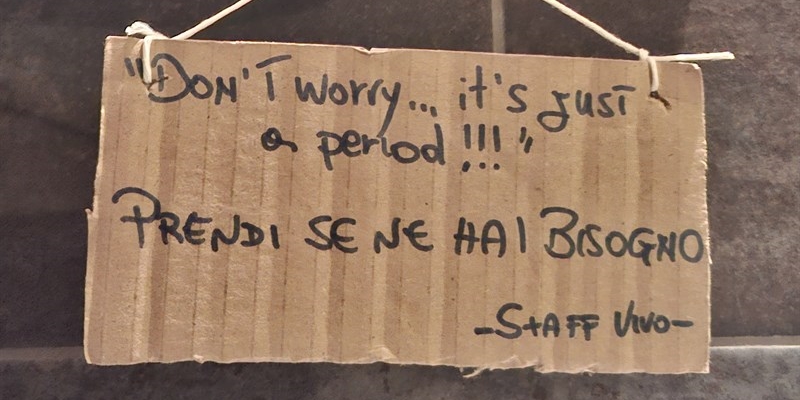 "DON'T worry... it's just
a period!!!"
PRENDI SE NE HAI BISOGNO
-STAFF VIVO-